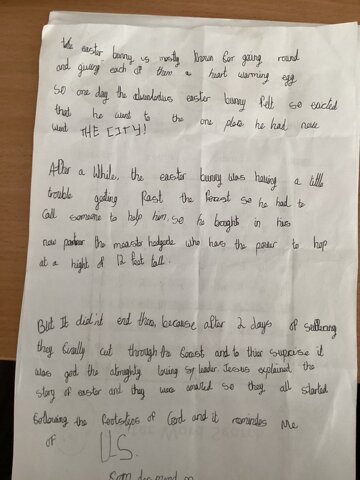 the easter bunny is mostly known for going round
and giving each of them a heart warming egg
so one day the easter bunny felt so excited
that he went to the one place he had never
went THE CITY!
After a while, the easter bunny was having a little
trouble getting Past the forest so he had to
call someone to help him. so he brought in his
new partner the hedgehog who has the power to hop
at a hight of 12 feet tall.
But It did'nt end there, because after 2 days of suffering
they finally cut through the forest and to thier suprise it
was god the almighty loving leader Jesus explained the
story of easter and they were so they all started
following the footsteps of God and it reminds Me
of US.